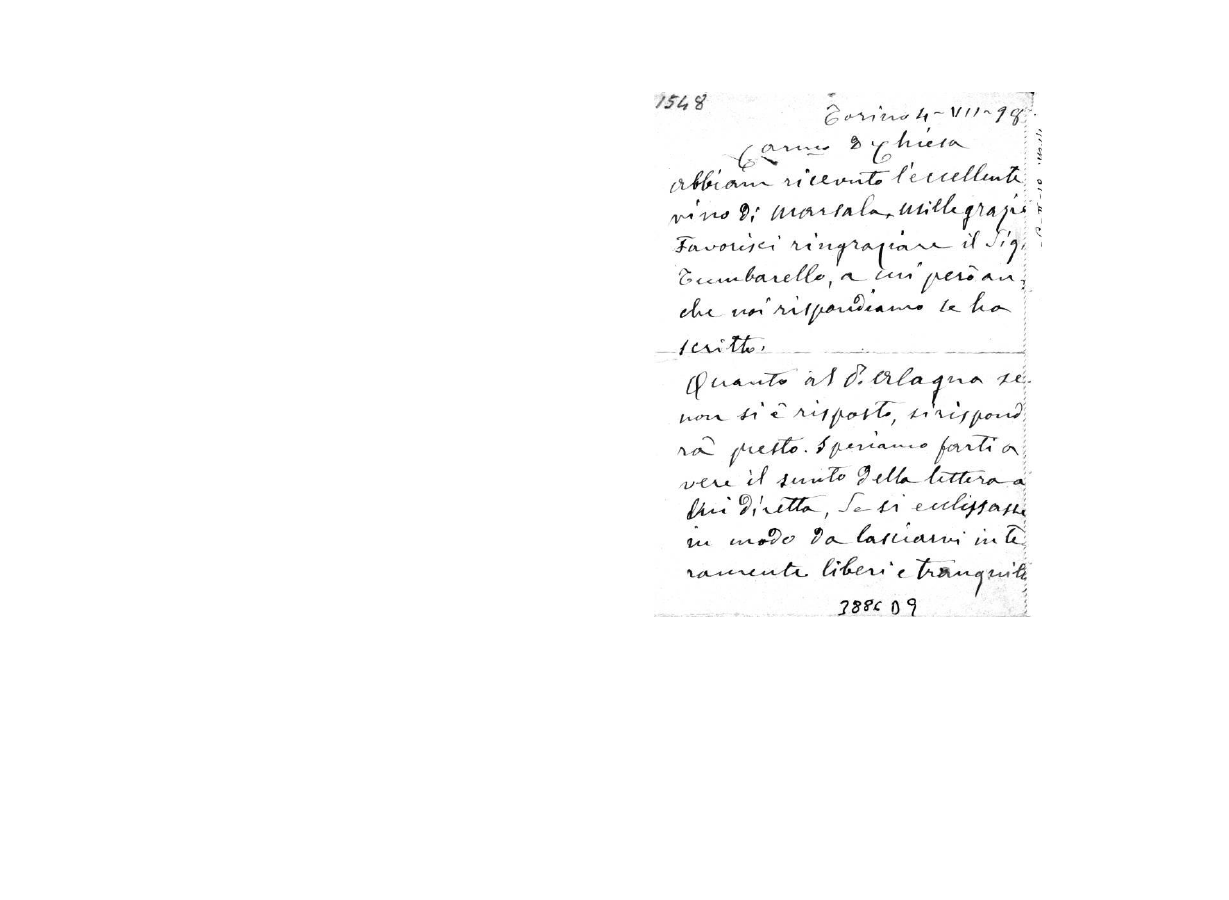 1548
Torino 4-VII-98
Car.mo D Chiesa
abbiam ricevuto l'eccellente
vino di Marsala. Mille grazie
Favorisci ringraziare il Sig.
Tumbarello, a cui però an-
che noi rispondiamo se ha
scritto.
Quanto al D. Alagna se
non si è risposto, si rispond
rà presto. Speriamo farti a
vere il sunto della lettera a
lui diretta, Se si eclissasse
in modo da lasciarvi inte
ramente liberi e tranquilli
3886 D 9